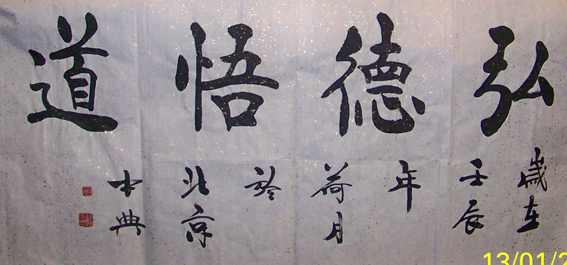 弘德悟道
歲在
壬辰
年
荷月
於
北京
13/01/2